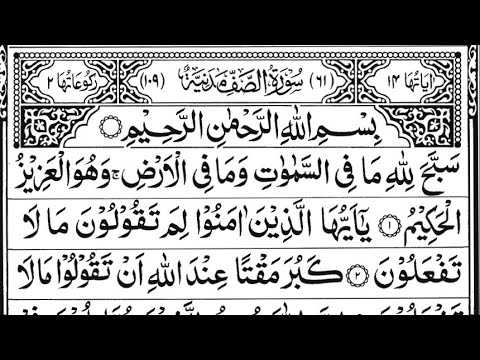 اٰیَاتُهَا ١٤ (٦١) سُوْرَةُ الصَّفِّ مَدَنِيَّةٌ (١٠٩) رُكُوْعَاتُهَا ٢
بِسْمِ اللّٰهِ الرَّحْمٰنِ الرَّحِيْمِ
سَبَّحَ لِلّٰهِ مَا فِى السَّمٰوٰتِ وَمَا فِى الْاَرْضِ ۚ وَهُوَ الْعَزِيْزُ
الْحَكِيْمُ ۝١ يٰۤاَيُّهَا الَّذِيْنَ اٰمَنُوْا لِمَ تَقُوْلُوْنَ مَا لَا
تَفْعَلُوْنَ ۝٢ كَبُرَ مَقْتًا عِنْدَ اللّٰهِ اَنْ تَقُوْلُوْا مَا لَا